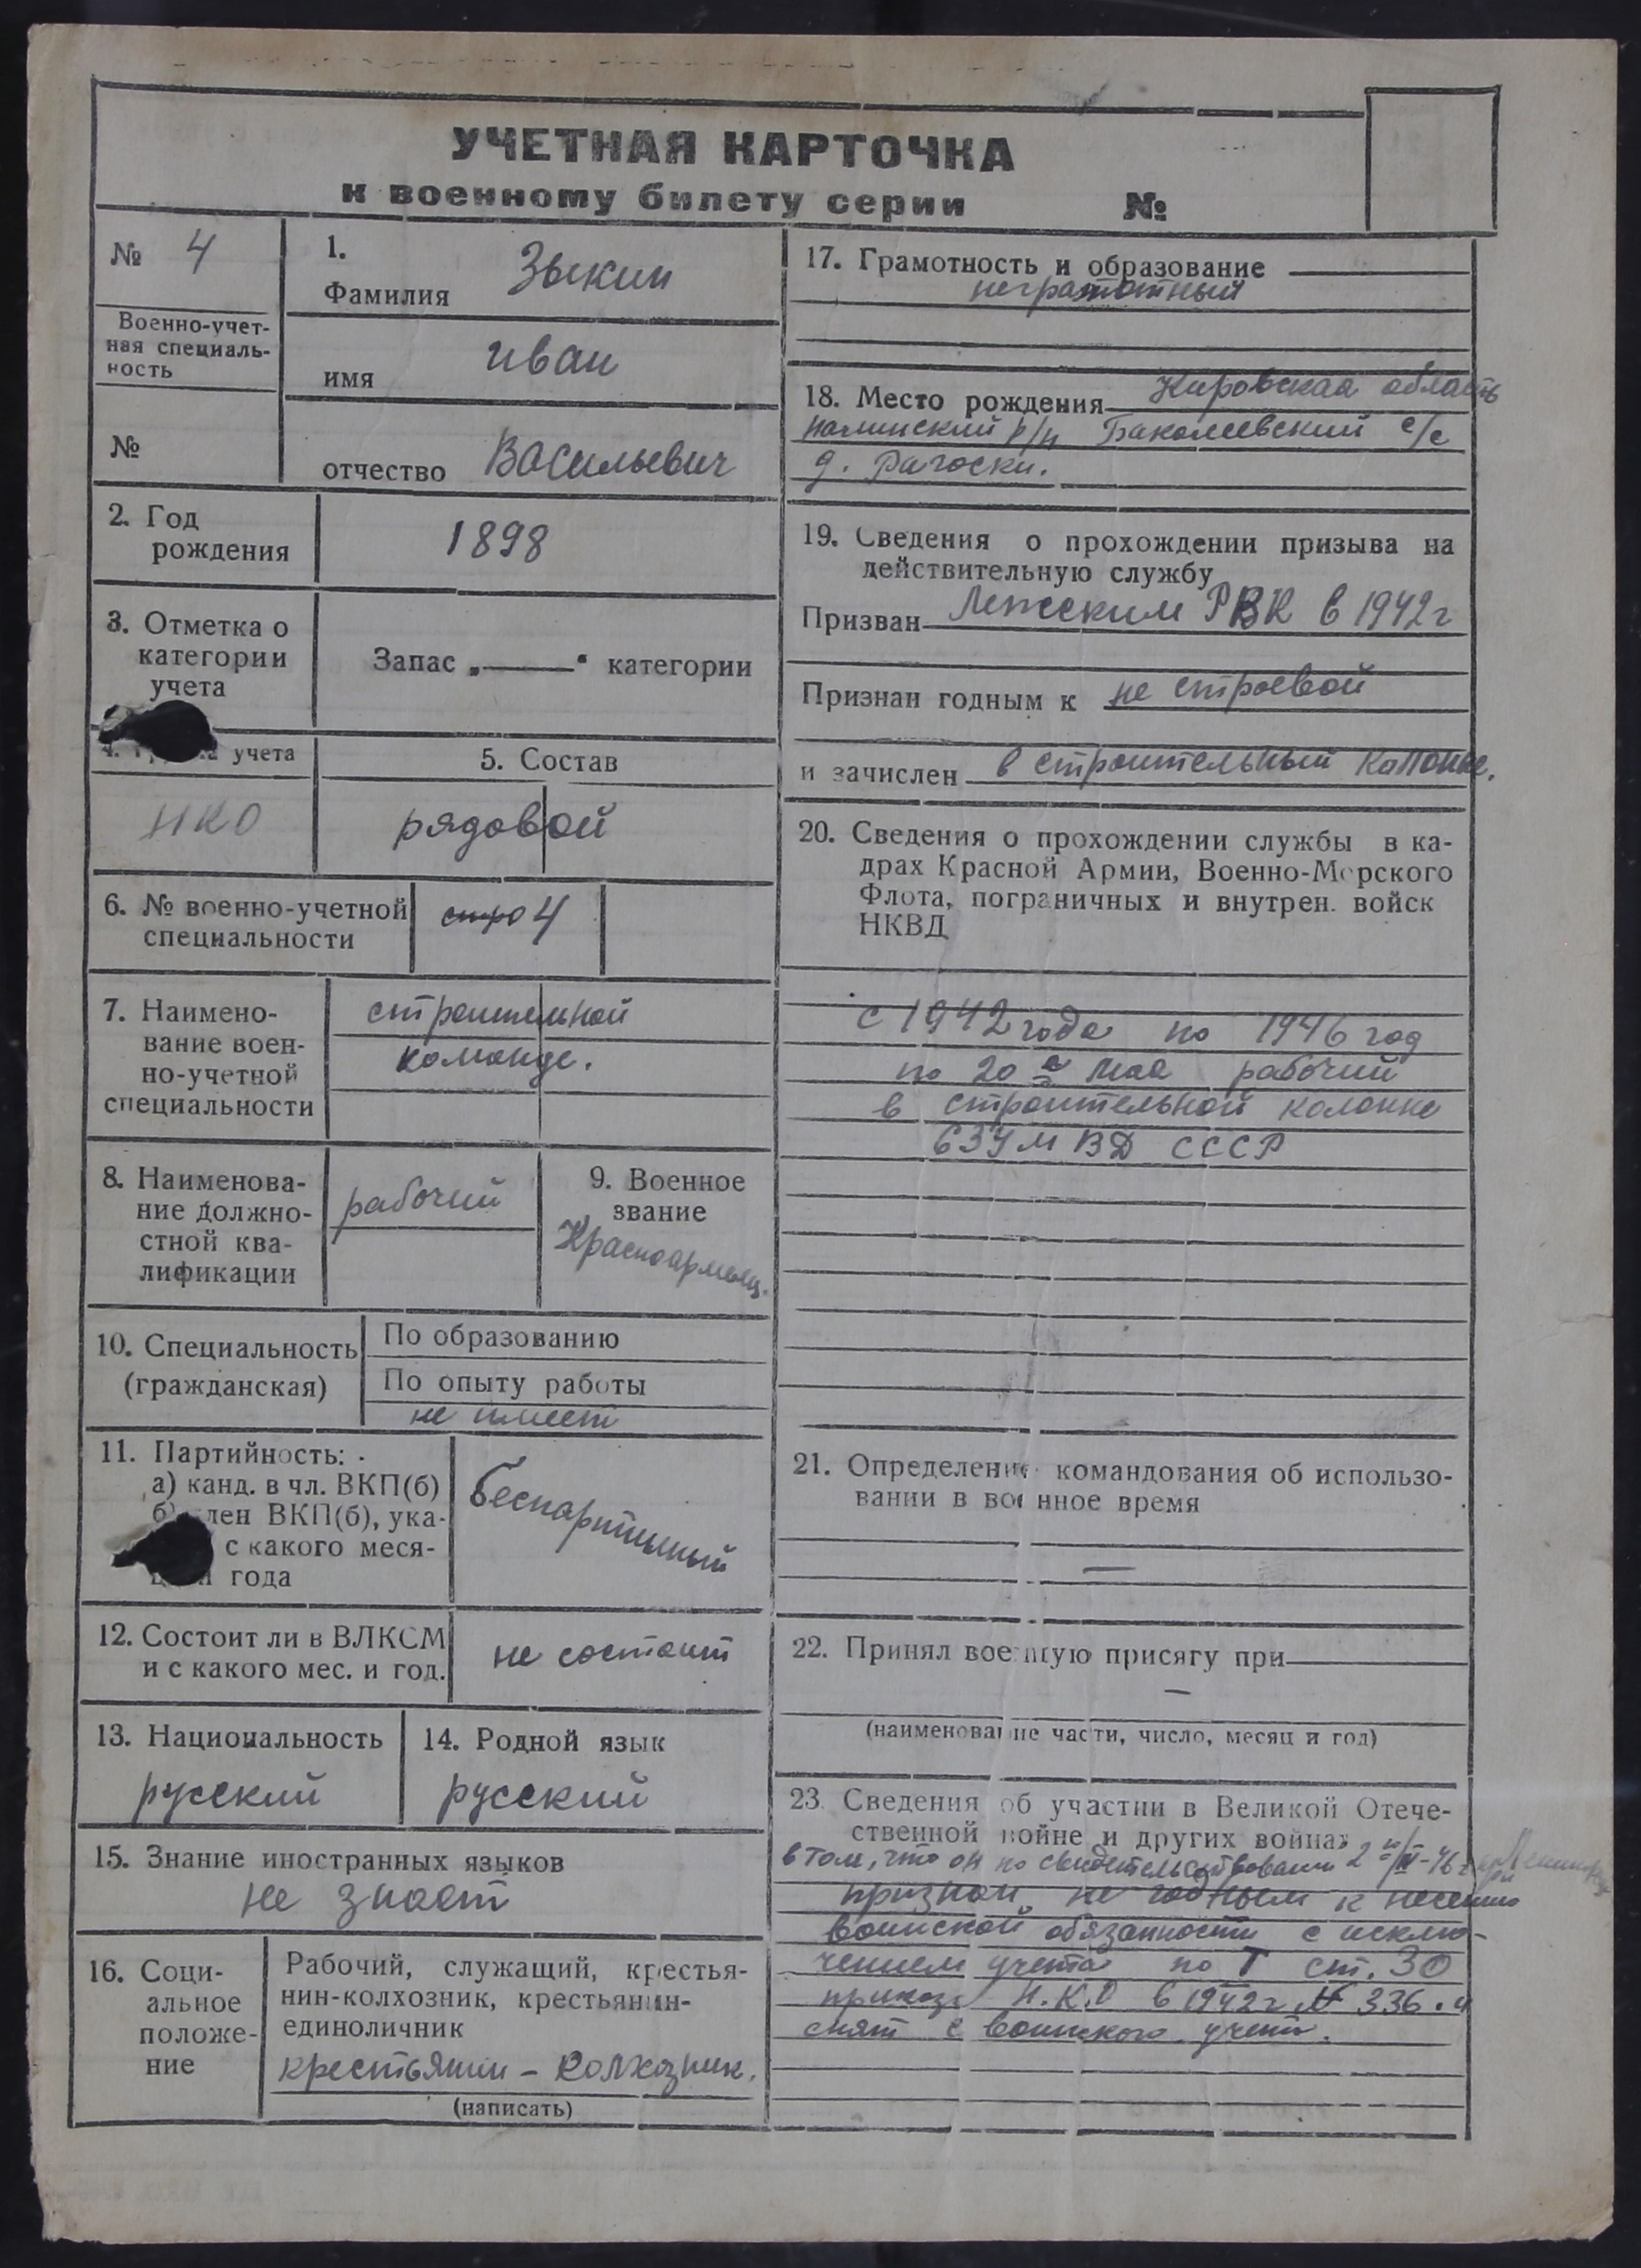 УЧЕТНАЯ КАРТОЧКА
к военному билету серии №
№ 4
Военно-учет-
ная специаль-
ность
№
1.
Фамилия Зыкин
имя Иван
отчество Васильевич
2. Год
рождения
1898
3. Отметка о
категории
учета
Запас „—“ категории
учета
НКО
5. Состав
рядовой
6. № военно-учетной
специальности
4
7. Наимено-
вание воен-
но-учетной
специальности
строительной
команде.
8. Наименова-
ние должно-
стной ква-
лификации
рабочий
9. Военное
звание
Красноармеец.
10. Специальность
(гражданская)
По образованию
По опыту работы
не имеет
11. Партийность:
а) канд. в чл. ВКП(б)
лен ВКП(б), ука-
с какого меся-
года
беспартийный
12. Состоит ли в ВЛКСМ
и с какого мес. и год.
не состоит
13. Национальность
русский
14. Родной язык
русский
15. Знание иностранных языков
не знает
16. Соци-
альное
положе-
ние
Рабочий, служащий, крестья-
нин-колхозник, крестьянин-
единоличник
крестьянин – колхозник.
(написать)
17. Грамотность и образование
неграмотный
18. Место рождения Кировская область
р/н с/с
д.
19. Сведения о прохождении призыва на
действительную службу
Призван РВК в 1942 г
Признан годным к не строевой
и зачислен в строительный
20. Сведения о прохождении службы в ка-
драх Красной Армии, Военно-Морского
Флота, пограничных и внутрен. войск
НКВД
с 1942 года по 1946 год
по 20 е мая рабочий
в строительной колонне
МВД СССР
21. Определение командования об использо-
вании в военное время
—
22. Принял военную присягу при
—
(наименование части, число, месяц и год)
23. Сведения об участии в Великой Отече-
ственной войне и других войнах
в том, что он по 2
признан не годным к несению
воинской обязанности с исклю-
чением учета по I ст. 30
приказа Н.К.О в 1942 г № 336. и
снят с воинского учета.